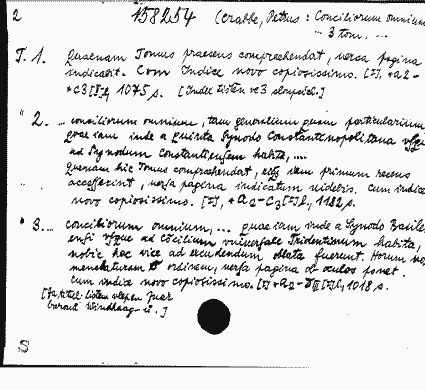 2 158254 (Crabbe, Petrus: Conciliorum omnium
- 3 tom. ...
T. 1. Quaenam Tomus praesens comprehendat, versa pagina
indicabit. Cum Indice novo copiosissimo. [2], +a2-
+c3 [2], 1075 p.
" 2. .. conciliorum omnium, tam generalium quam particularium,
quae iam inde a quinta Synodo Constantinopolitana usque
ad Synodum Constantiensem habita, ...
Quenam hic Tomus comprehendat, iam primum recens
accesserint, versa pagina indicatum videbis. Cum indice
novo copiosissimo. [2], +a2-c3 [2], 1182 p.
" 3. .. conciliorum omnium, ... quae iam inde a Synodo Basile
ensi usque ad Concilium universale Tridentinum habita,
nobis hac vice ad excudendum oblata fuerunt. Horum no
menclaturam & ordinem, versa pagina ob oculos ponet.
Cum indice novo copiosissimo. 1018 p.
S